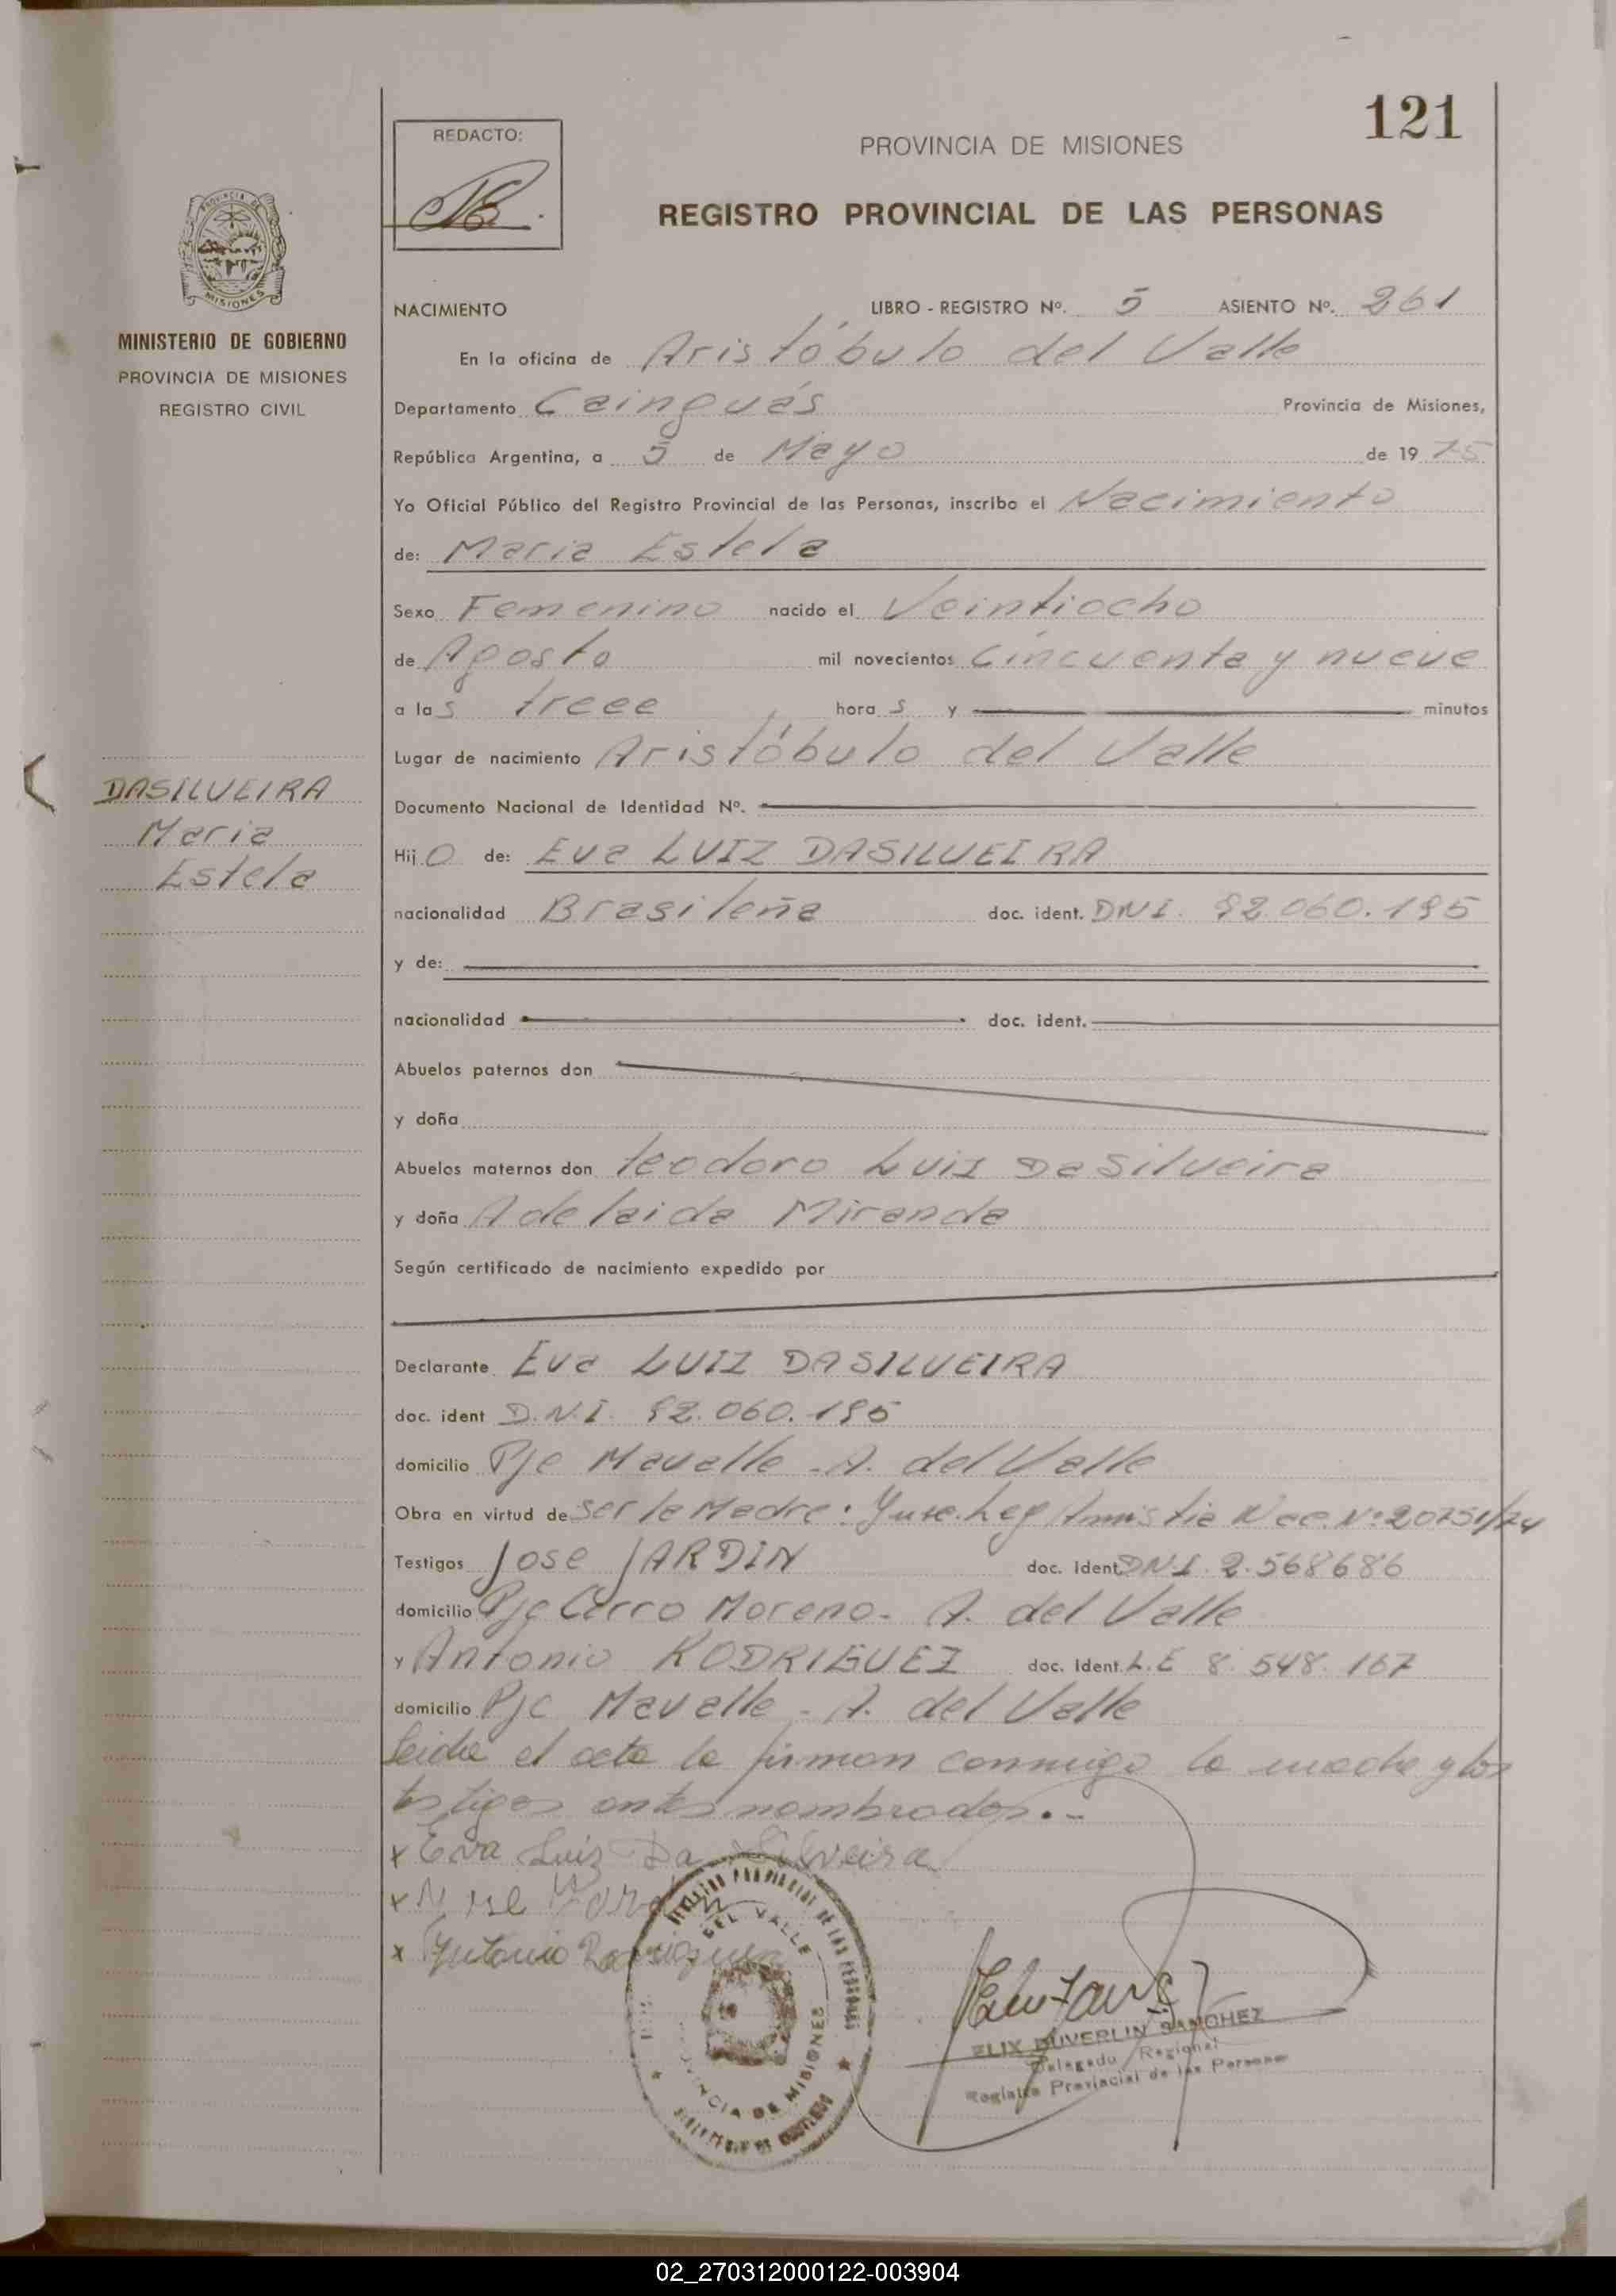 121
REDACTO:
PROVINCIA DE MISIONES
REGISTRO PROVINCIAL DE LAS PERSONAS
PROVINCIA DE
MISIONES
MINISTERIO DE GOBIERNO
PROVINCIA DE MISIONES
REGISTRO CIVIL
NACIMIENTO LIBRO - REGISTRO Nº. 5 ASIENTO Nº. 261
En la oficina de Aristóbulo del Valle
Departamento Cainguás Provincia de Misiones,
República Argentina, a 5 de Mayo de 19 75
Yo Oficial Público del Registro Provincial de las Personas, inscribo el Nacimiento
de: Maria Estela
Sexo Femenino nacido el Veintiocho
de Agosto mil novecientos Cincuenta y nueve
a las trece horas y minutos
Lugar de nacimiento Aristóbulo del Valle
DASILVEIRA
Maria
Estela
Documento Nacional de Identidad Nº.
Hijo de: Eva LUIZ DASILVEIRA
nacionalidad Brasileña doc. ident. DNI. 92.060.195
y de:
nacionalidad doc. ident.
Abuelos paternos don
y doña
Abuelos maternos don teodoro Luiz DaSilveira
y doña Adelaida Miranda
Según certificado de nacimiento expedido por
Declarante Eva LUIZ DASILVEIRA
doc. ident D.N.I. 92.060.195
domicilio Pje Mavalle - A. del Valle
Obra en virtud de ser la Madre: Leg. Amnistia Nac. Nº 20751/74
Testigos Jose JARDIN doc. Ident DNI. 2.568686
domicilio Pje Cerro Moreno - A. del Valle
y Antonio RODRIGUEZ doc. Ident. L.E 8.548.167
domicilio Pje Mavalle - A. del Valle
Leida el acta la firman conmigo la madre y los
testigos antes nombrados.-
x Eva Luiz Da Silveira
x
x Antonio Rodriguez
DEL VALLE
PROVINCIA DE MISIONES
FELIX DUVERLIN SANCHEZ
Delegado Regional
Registro Provincial de las Personas
02_270312000122-003904